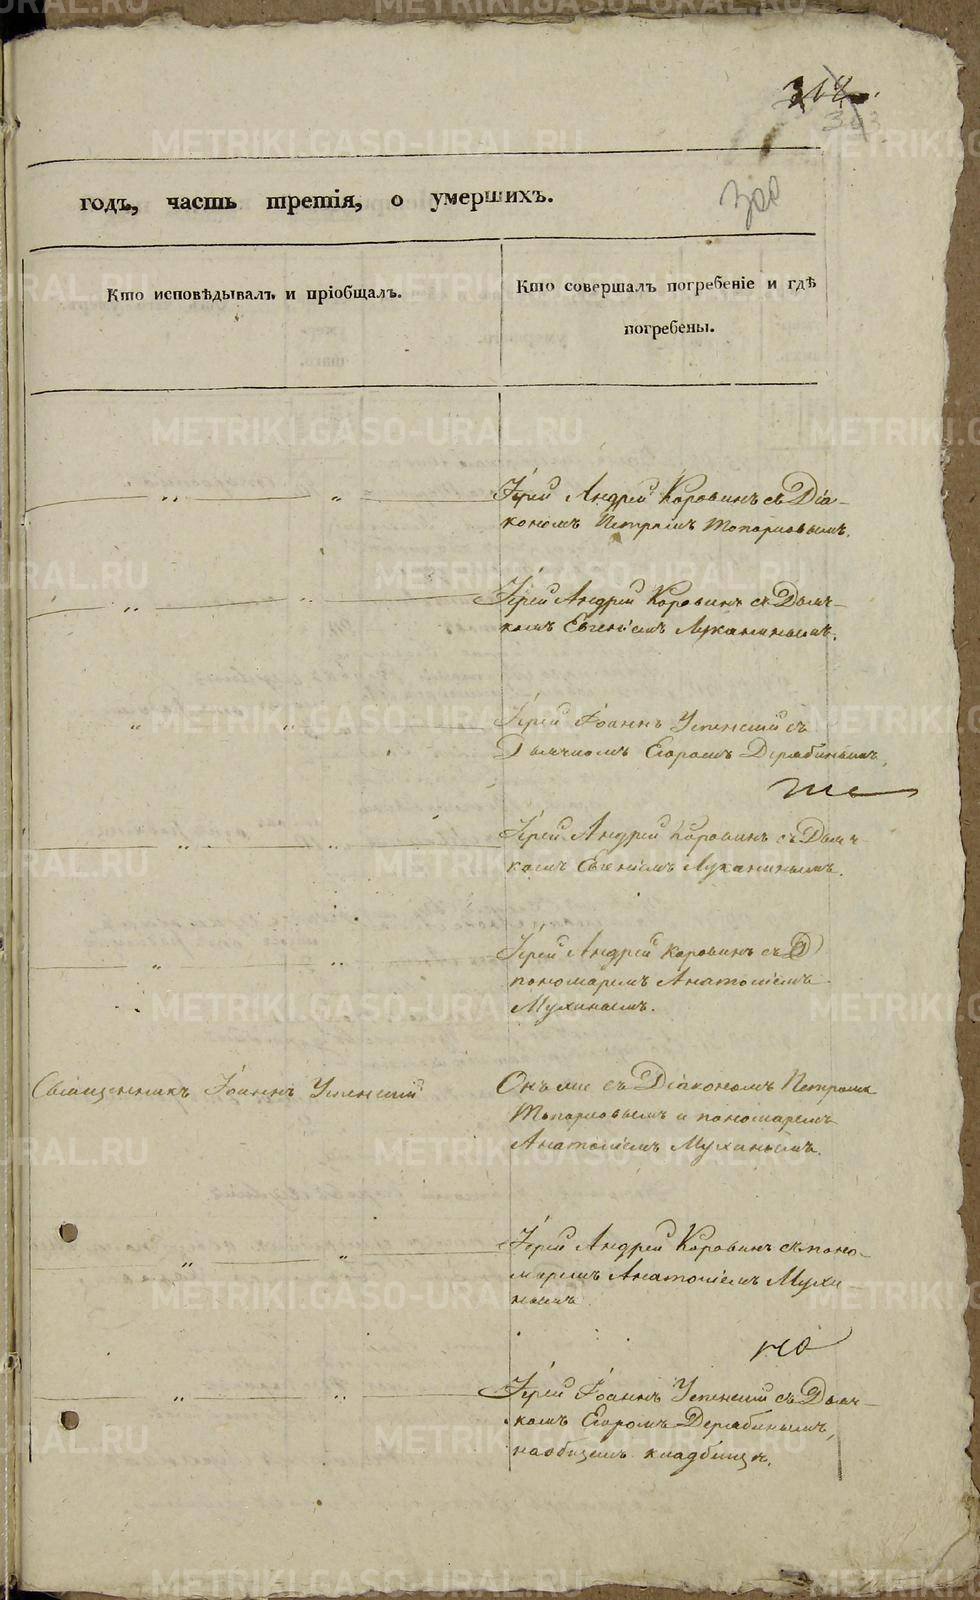 годъ, часть третія, о умершихъ.
300
Кто исповѣдывалъ и пріобщалъ.
Кто совершалъ погребеніе и гдѣ
погребены.
Іерей Андрей Коровинъ съ Діа-
кономъ Петромъ Топорковымъ.
Іерей Андрей Коровинъ съ Дьяч-
комъ Евгеніемъ Луканинымъ.
Іерей Іоаннъ Успенскій съ
Дьячкомъ Егоромъ Дерябинымъ,
Іерей Андрей Коровинъ съ Дьяч-
комъ Евгеніемъ Луканинымъ.
Іерей Андрей Коровинъ съ
пономаремъ Анатоліемъ
Мухинымъ.
Священникъ Іоаннъ Успенскій
Онъ же съ Діакономъ Петромъ
Топорковымъ и пономаремъ
Анатоліемъ Мухинымъ.
Іерей Андрей Коровинъ съ поно-
маремъ Анатоліемъ Мухи-
нымъ
Іерей Іоаннъ Успенскій съ Дьяч-
комъ Егоромъ Дерябинымъ,
на общемъ кладбищѣ.
METRIKI.GASO-URAL.RU